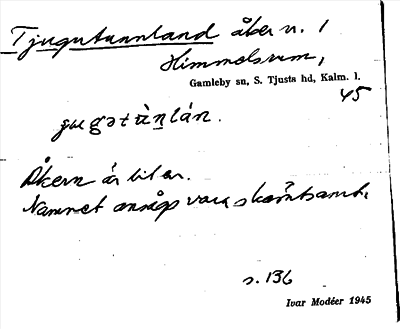 Tjugutunnland åker n. 1
Himmelsrum,
Gamleby sn, S. Tjusts hd, Kalm. l.
45
ɟugətùn̲lán.
Åkern är liten.
Namnet anságs vara skämtsamt.
s. 136
Ivar Modéer 1945